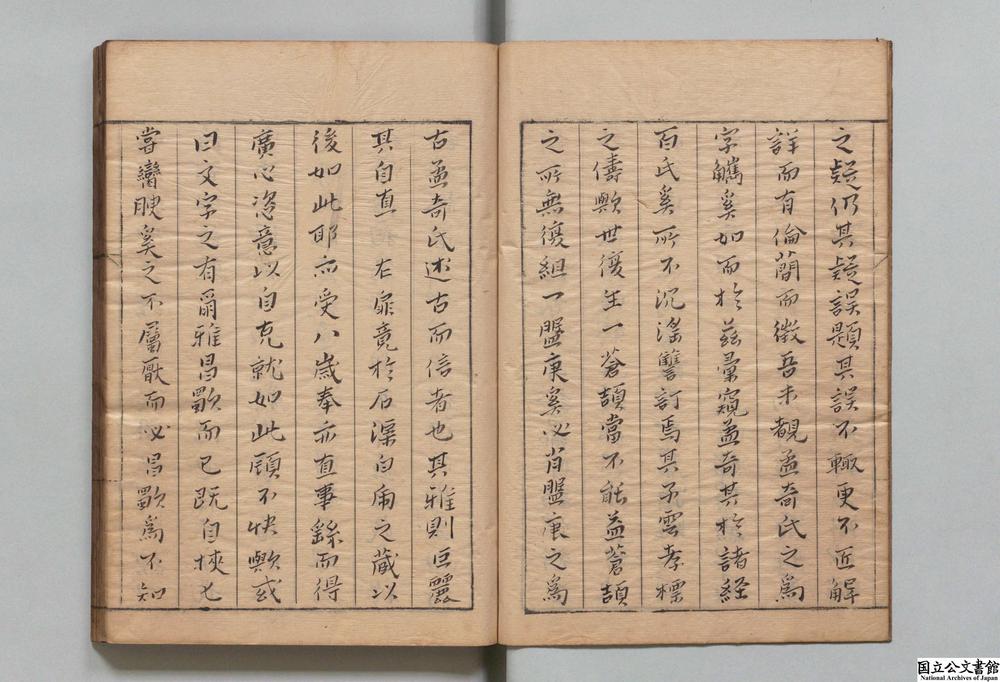 之疑仍其疑誤題其誤不輙更不匠解
詳而有倫蕳而徵吾未覩孟奇氏之為
字觿奚如而於茲彙窺孟奇其於諸経
百氏奚所不沉滛讐訂焉其子雲孝標
之儔歟世復生一蒼頡當不能益蒼頡
之所無復組一盬庚奚必肖盬庚之為
古孟奇氏述古而信者也其雅則巨麗
其自直在扉竟於石渠白甫之蔵以
後如此耶而受八歲奉而直事繇而得
廣心恣意以自克就如此頋不快歟或
曰文字之有爾雅昌歜而已既自挾乜
嘗臠腴奚之不屬厭而必昌歜為不知
国立公文書館
National Archives of Japan